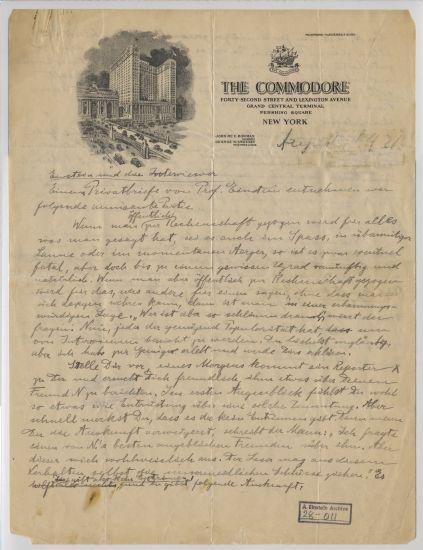 THE COMMODORE
FORTY-SECOND STREET AND LEXINGTON AVENUE
GRAND CENTRAL TERMINAL
PERSHING SQUARE
NEW YORK
Einstein und die Interviewer
Einem Privatbriefe von Prof. Einstein entnehmen wir
folgende amüsante
öffentlich
Wenn man zur Rechenschaft gezogen wird für alles
was man gesagt hat, sei es auch im Spass, in übermütiger
Laune oder im momentanen Ärger, so ist es zwar eventuell
fatal, aber doch bis zu einem gewissen Grad vernünftig und
natürlich. Wenn man aber öffentlich zur Rechenschaft gezogen
wird für das, was andere für einen sagen, ohne dass man
sich dagegen wehren kann, dann ist man in einer erbarmungs-
würdigen Lage. "Wer ist aber so schlimm dran?", wirst du
fragen. Nun, jeder der genügend Popularität hat, dass ihn
von Interviewern besucht zu werden. Du lächelst ungläubig,
aber ich hab's zur Genüge erlebt und werde Dir's erklären.
Stelle Dir vor, eines Morgens kommt ein Reporter
zu Dir und ersucht Dich freundlich ihm etwas über Deinen
Freund N zu berichten. Im ersten Augenblick fühlst Du wohl
so etwas wie Entrüstung über eine solche Zumutung. Aber
schnell merkst Du, dass es da kein Entrinnen gibt. Denn wenn
Du die Auskunft verweigerst, schreibt der Mann: „Ich fragte
einen von N's besten angeblichen Freunden über ihn. Aber
dieser wich wohlweislich aus. Der Leser mag aus diesem
Verhalten selbst die unvermeidlichen Schlüsse ziehen." Es
gibt also kein Entrinnen, und Du gibst folgende Auskunft.
A. Einstein Archive
28-011